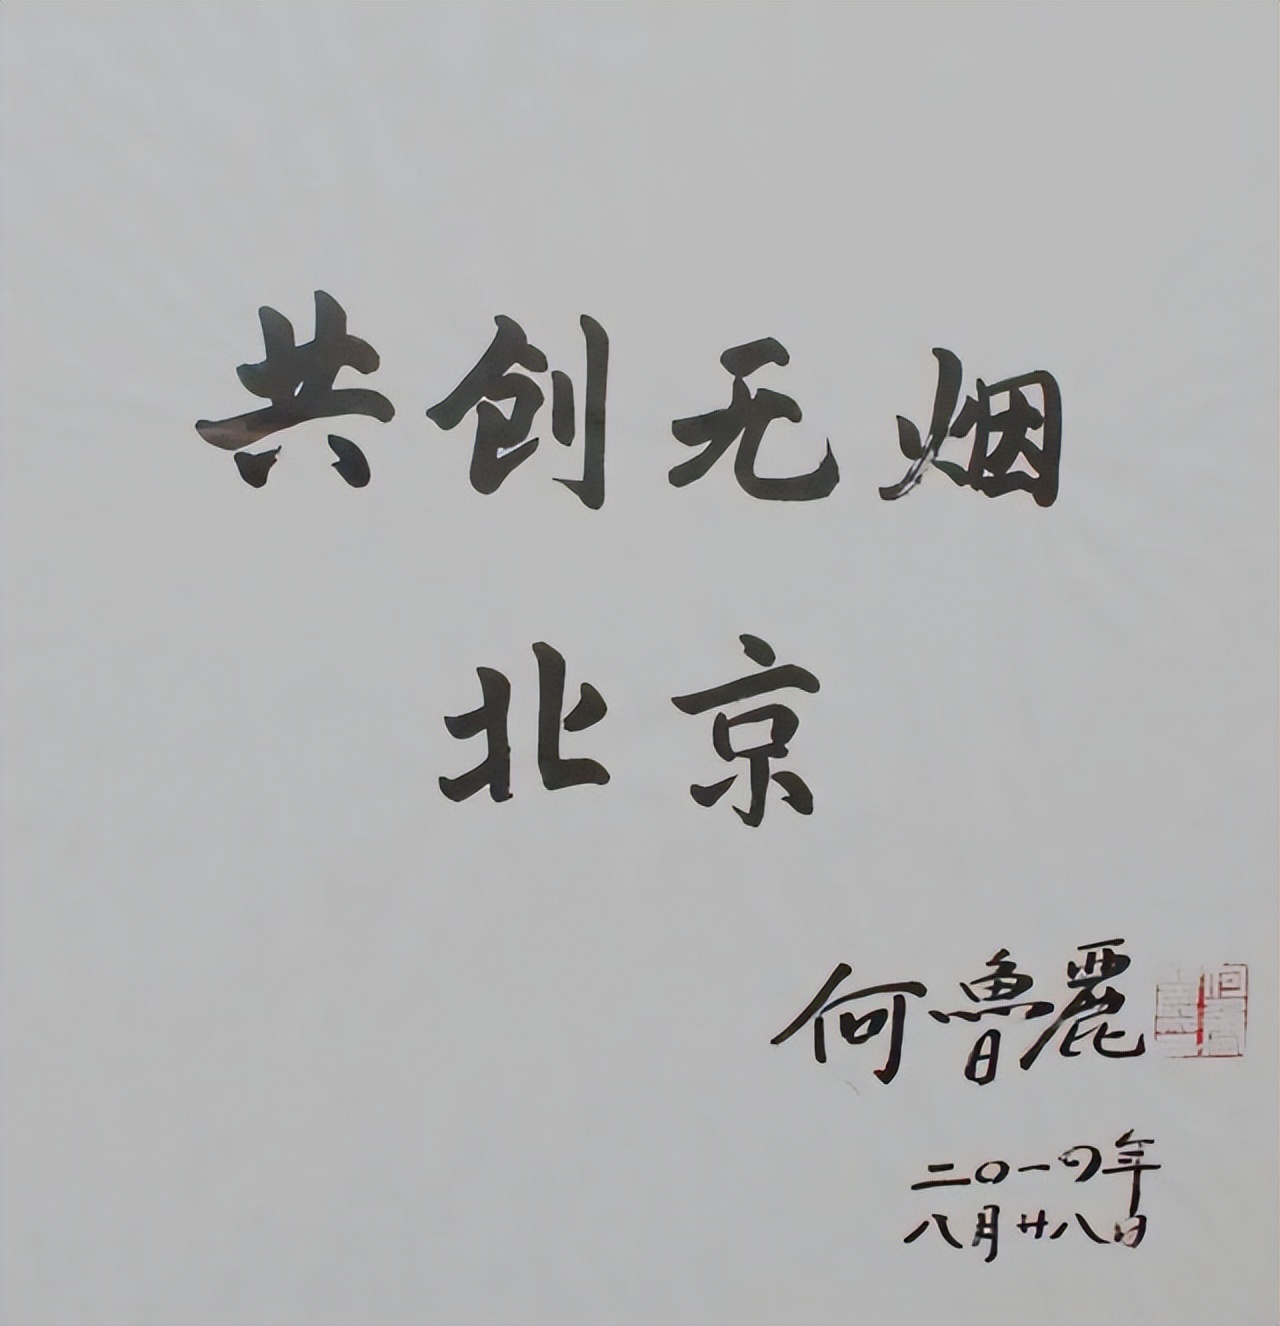 共创无烟
北京
何魯麗
二〇一四年
八月廿八日